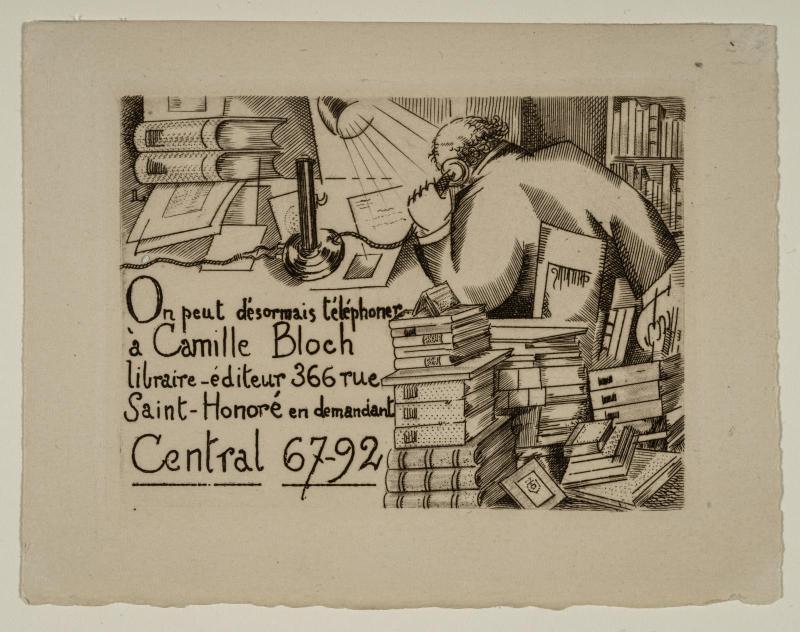 On peut désormais téléphoner
à Camille Bloch
libraire-éditeur 366 rue
Saint-Honoré en demandant
Central 67-92